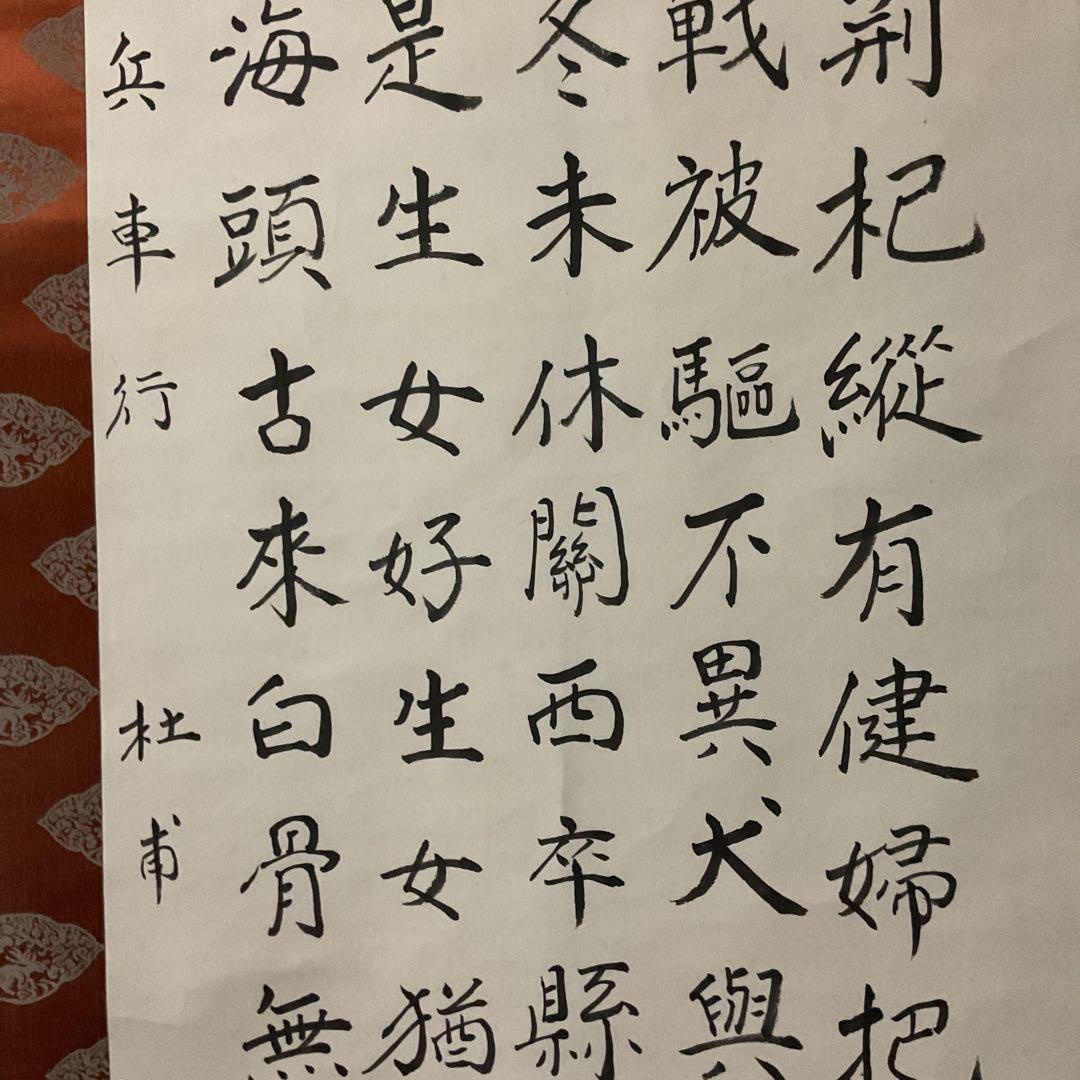 荆杞縱有健婦把
戰被驅不異犬與
冬未休關西卒縣
是生女好生女猶
海頭古來白骨無
兵車行 杜甫